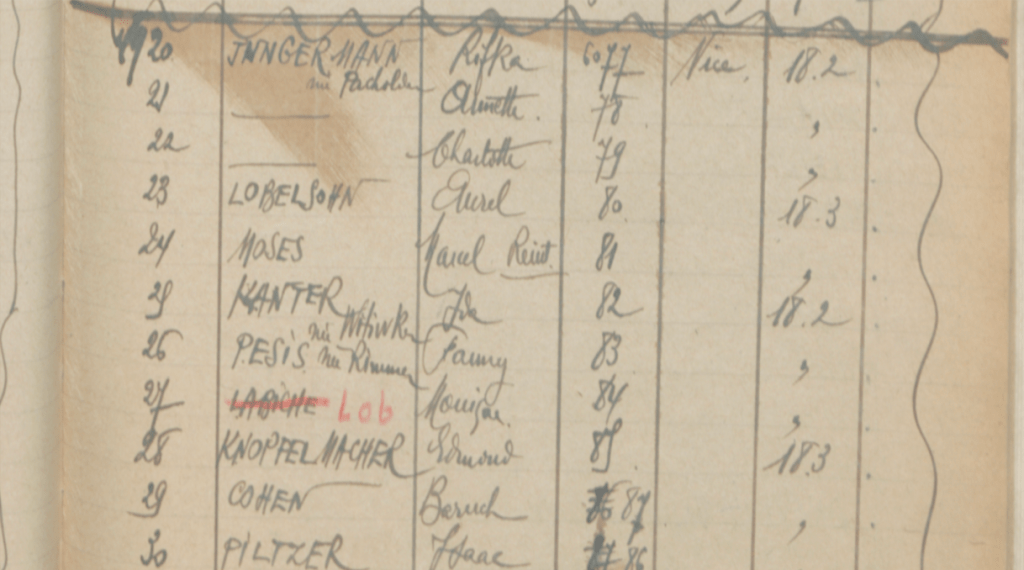 4920 JUNGERMANN Rifka 6077 Nice. 18.2
née
21 — Annette. 78 "
22 — Charlotte 79 "
23 LOBELSOHN Aurel 80. 18.3
24 MOSES Marcel 81 "
25 KANTER Ida 82 18.2
née
26 PESIS née Fanny 83 "
27 LABICHE Lob Monique. 84 "
28 KNOPFELMACHER Edmond 85 18.3
29 COHEN Baruch 87 "
30 PILTZER Isaac 86